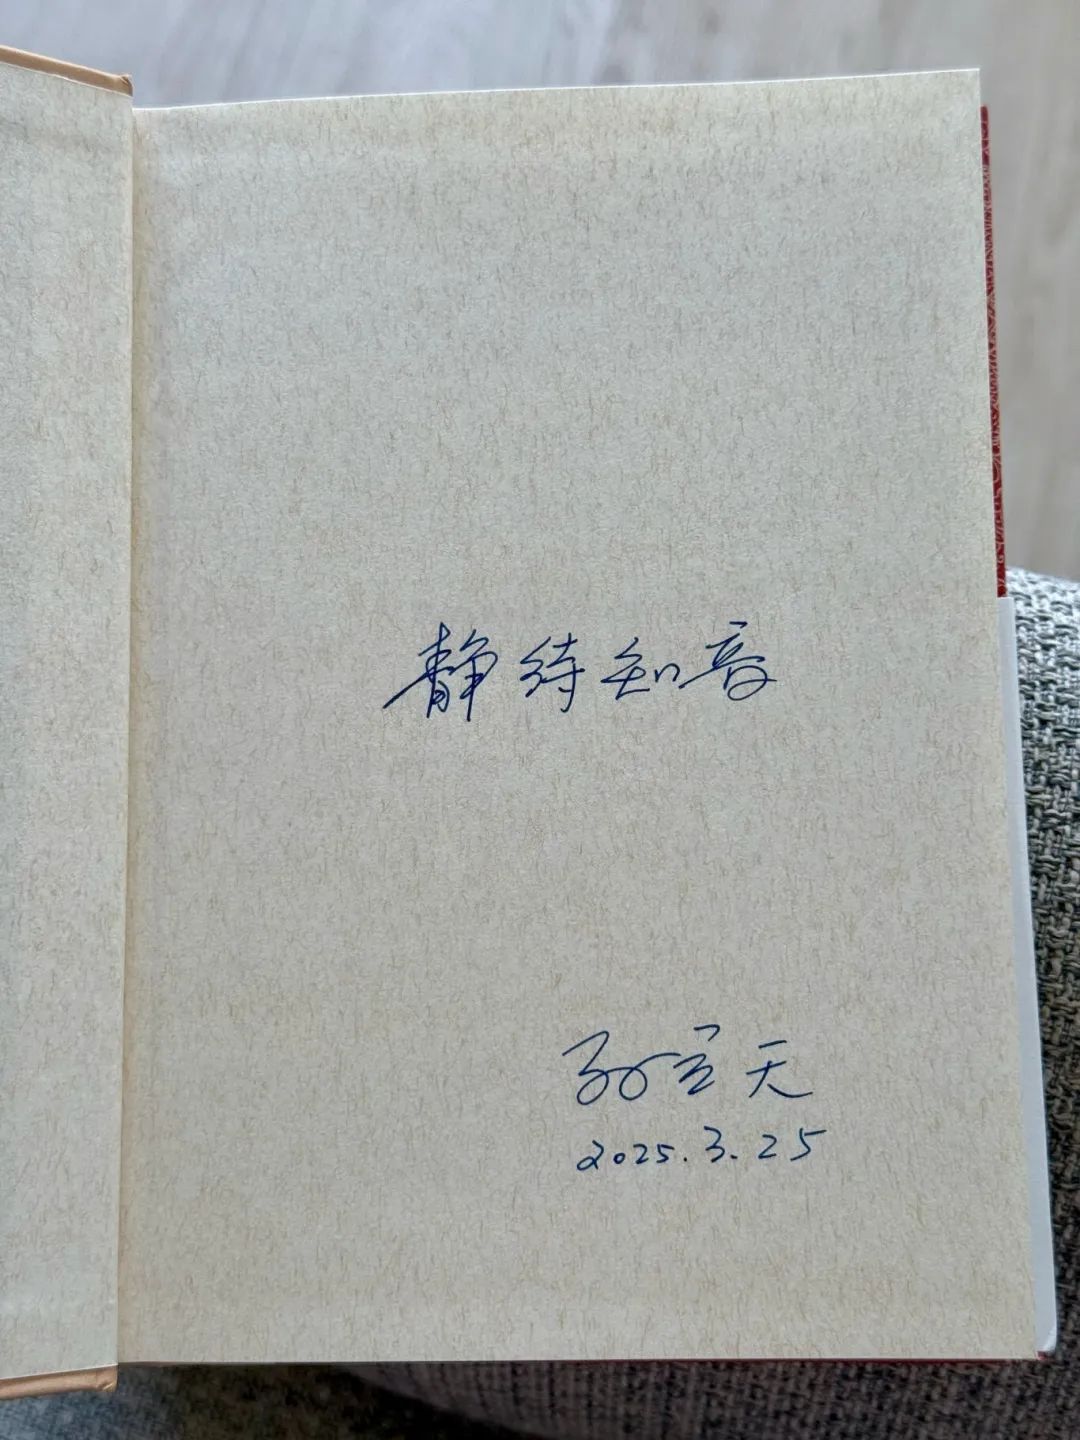 静待知音
孙立天
2025.3.25